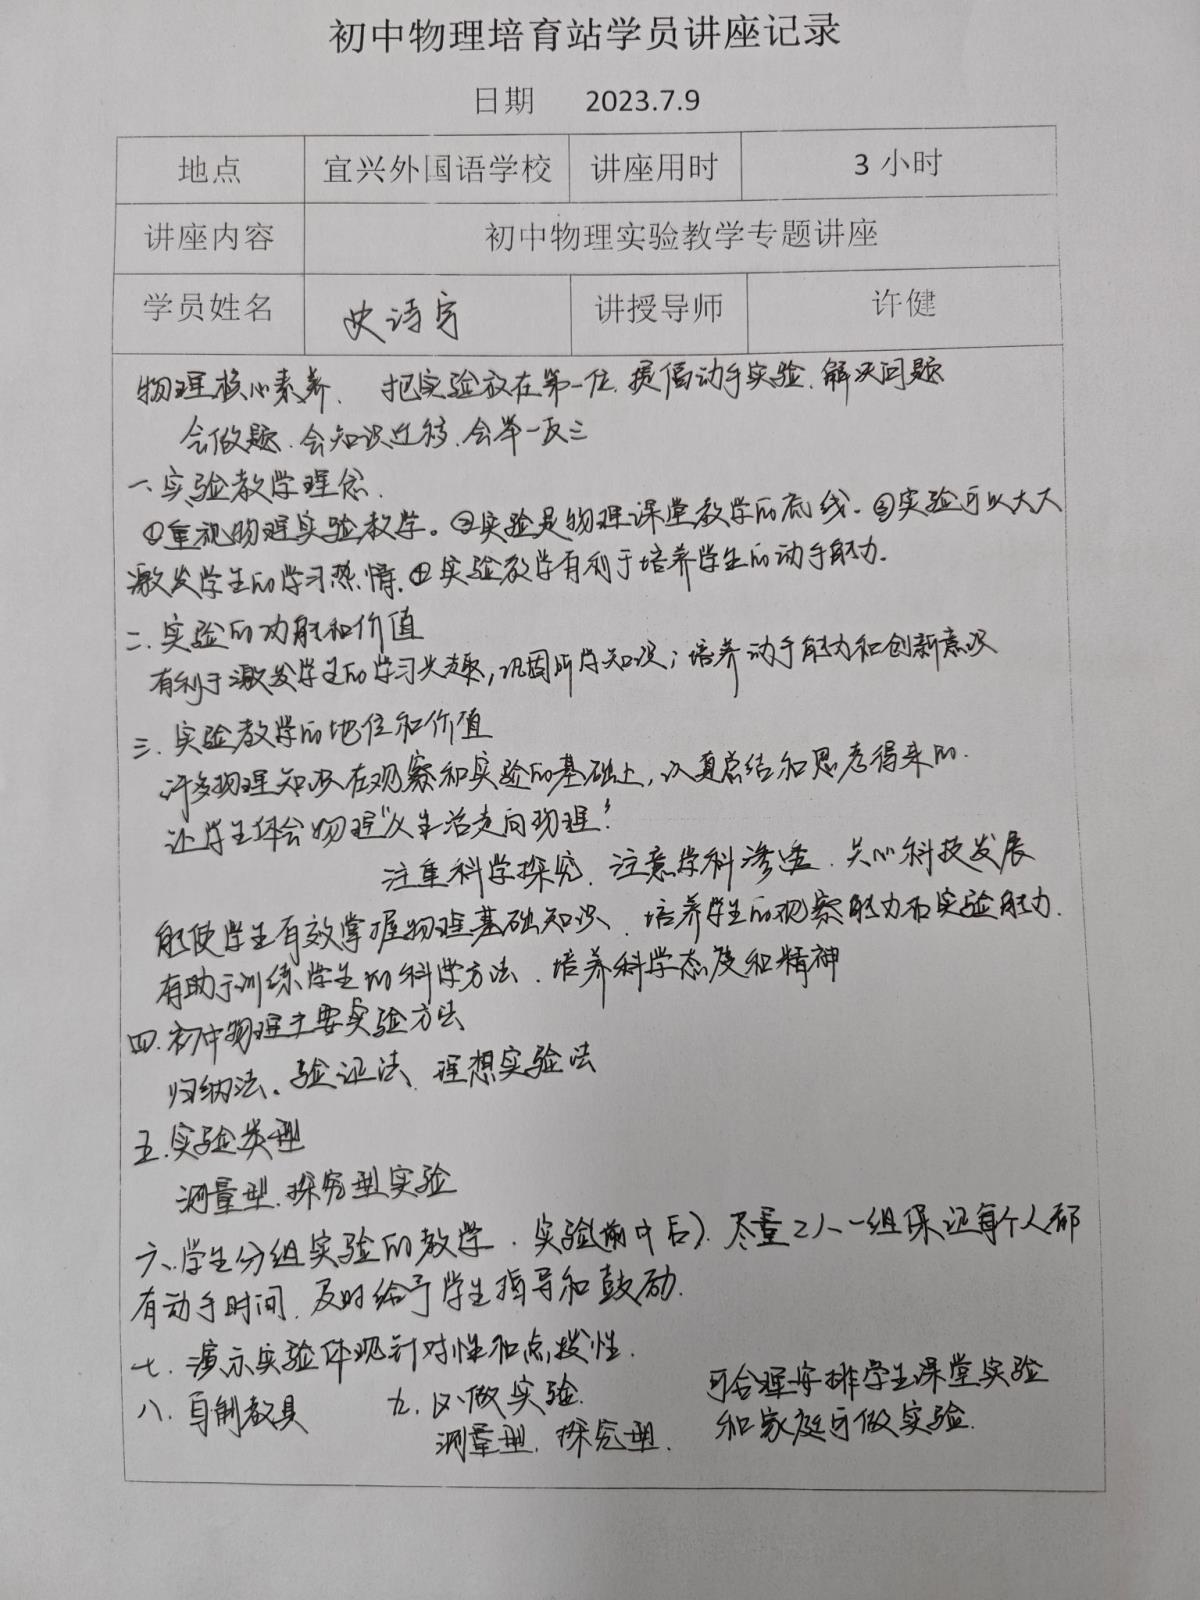 初中物理培育站学员讲座记录
日期 2023.7.9
地点 宜兴外国语学校 讲座用时 3 小时
讲座内容 初中物理实验教学专题讲座
学员姓名 史诗宇 讲授导师 许健
物理核心素养、 把实验放在第一位、提倡动手实验、解决问题
会做题、会知识迁移、会举一反三
一、实验教学理念、
①重视物理实验教学。②实验是物理课堂教学的底线。③实验可以大大
激发学生的学习热情、④实验教学有利于培养学生的动手能力。
二、实验的功能和价值
有利于激发学生的学习兴趣,巩固所学知识;培养动手能力和创新意识
三、实验教学的地位和价值
许多物理知识在观察和实验的基础上,认真总结和思考得来的.
让学生体会物理"从生活走向物理"
注重科学探究、注意学科渗透、关心科技发展
能使学生有效掌握物理基础知识、培养学生的观察能力和实验能力.
有助于训练学生的科学方法、培养科学态度和精神
四.初中物理主要实验方法
归纳法、验证法、理想实验法
五.实验类型
测量型、探究型实验
六、学生分组实验的教学、实验(前中后)、尽量2人一组保证每个人都
有动手时间、及时给予学生指导和鼓励.
七、演示实验体现针对性和点拨性.
八、自制教具 九、必做实验 可合理安排学生课堂实验
测量型、探究型、 和家庭可做实验.